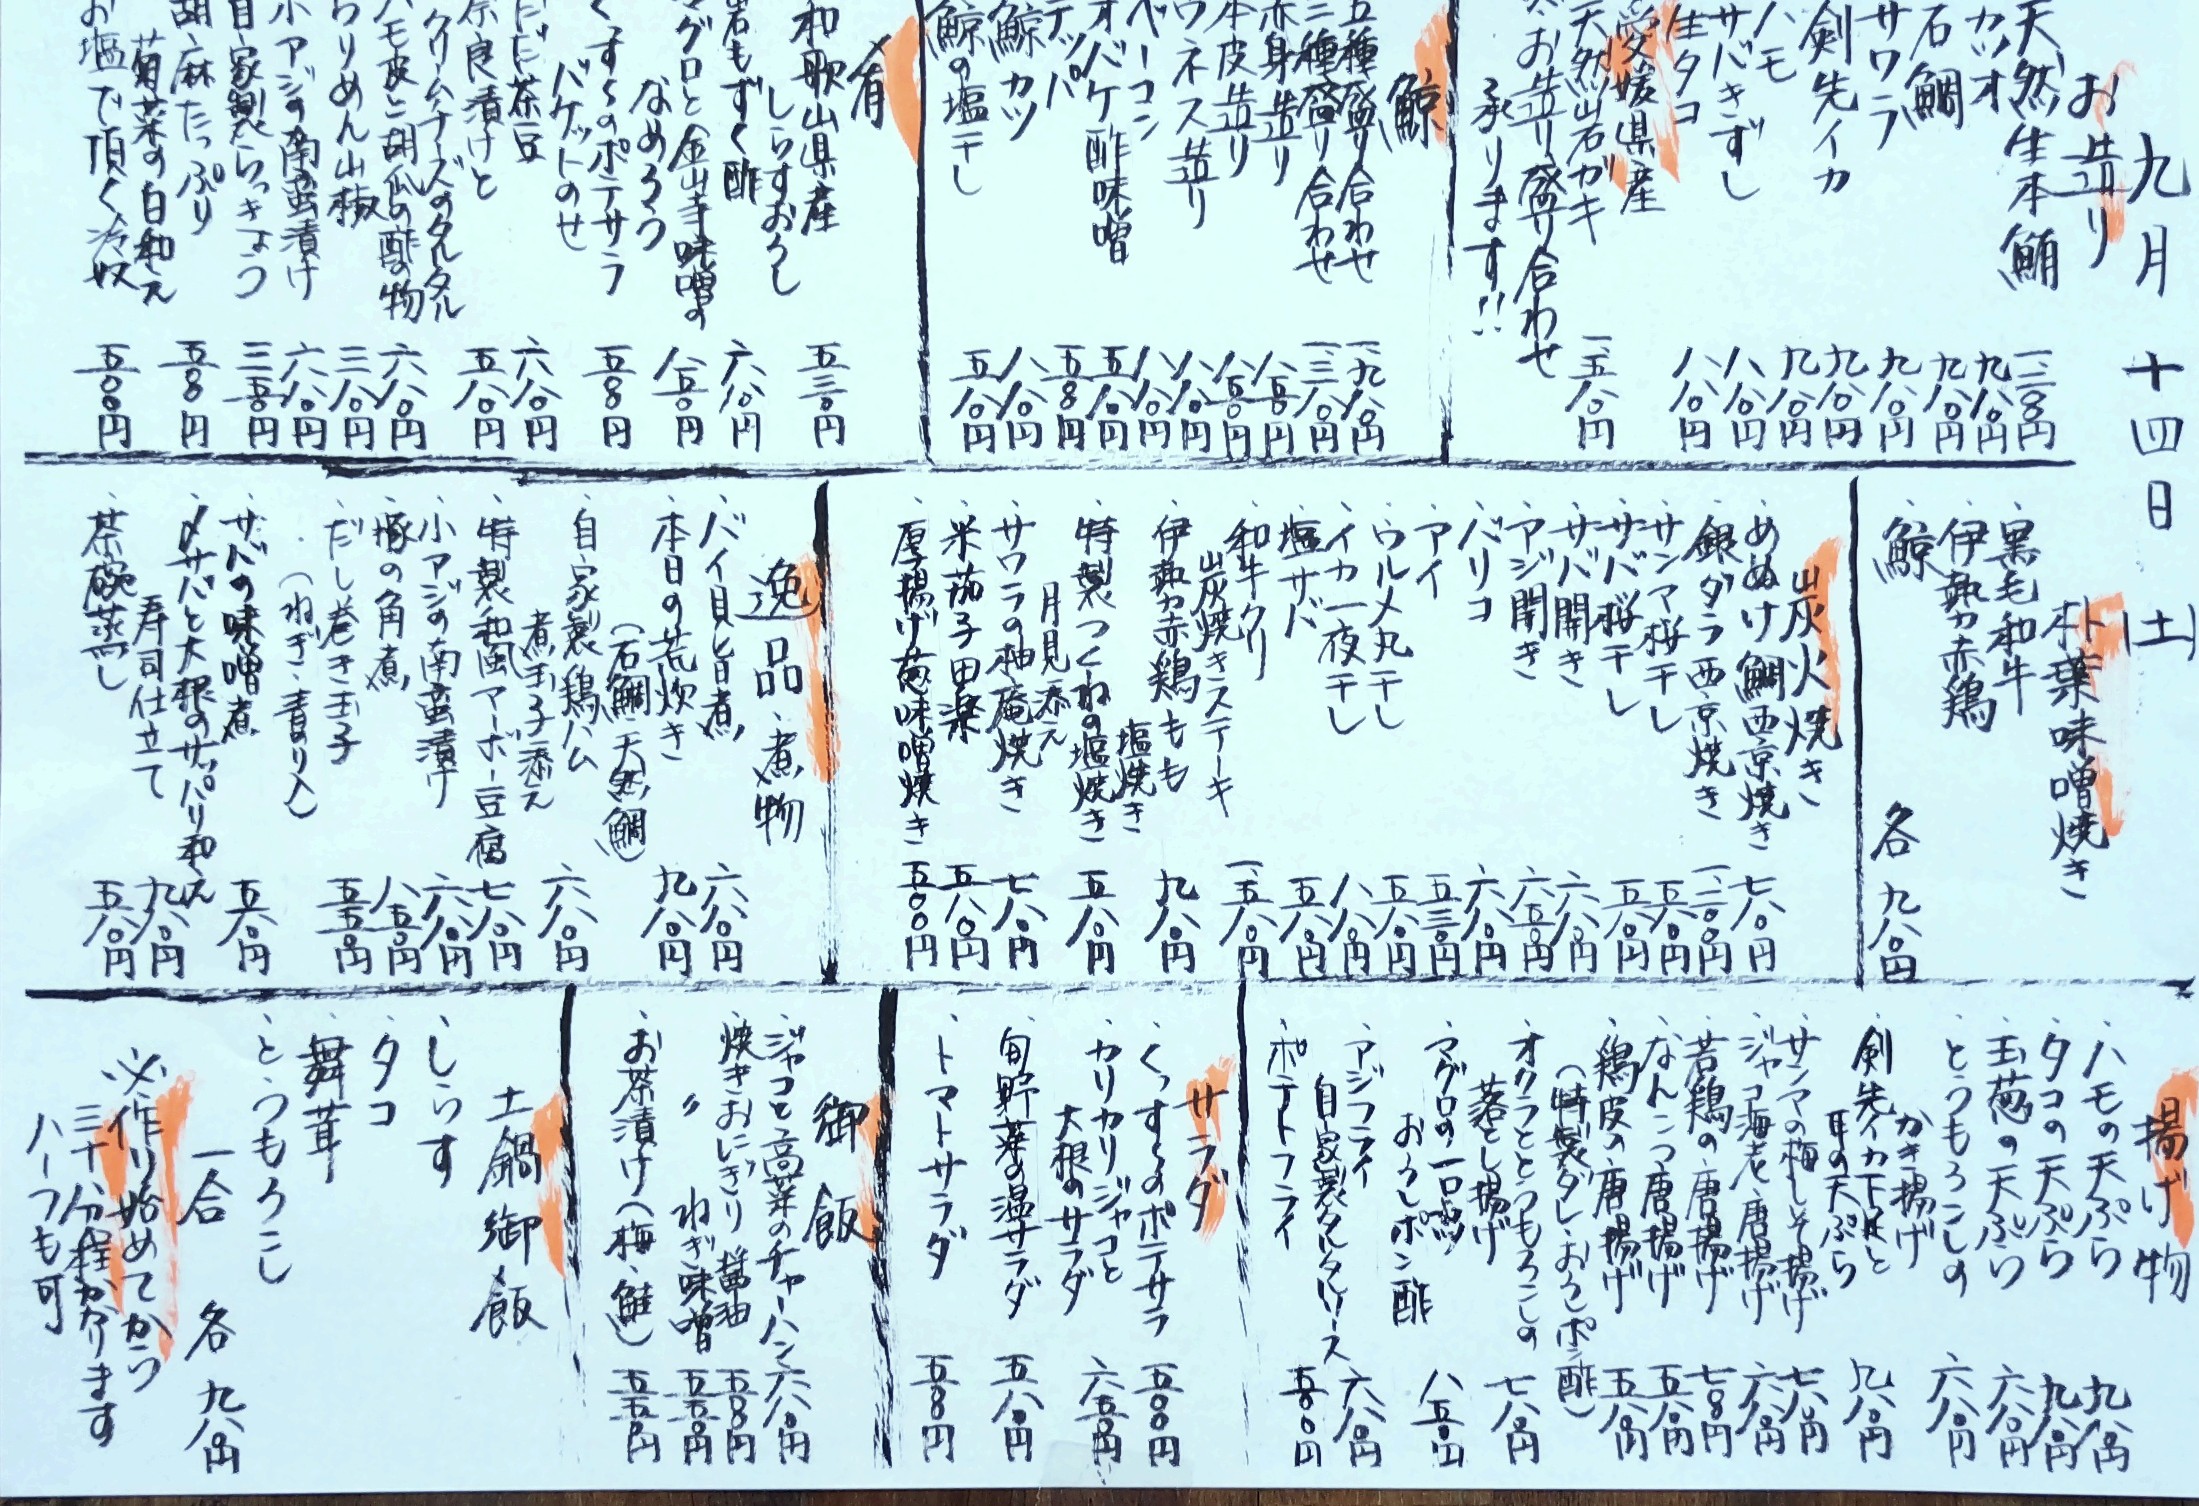 九月十四日(土)
お造り
天然生本鮪
カツオ 九八〇円
石鯛 九八〇円
サワラ 九八〇円
剣先イカ 九八〇円
ハモ 九八〇円
サバきずし 八八〇円
生タコ 八八〇円
愛媛県産
天然岩ガキ 一、五八〇円
お造り盛り合わせ
承ります!!
鯨
五種盛り合わせ 一、九八〇円
三種盛り合わせ 一、三八〇円
赤身造り 八五〇円
本皮造り 八五〇円
ウネス造り 八八〇円
ベーコン 八八〇円
オバケ酢味噌 五八〇円
テッパ 五五〇円
鯨カツ 八八〇円
鯨の塩干し 五八〇円
〆肴
和歌山県産
しらすおろし 五三〇円
岩もずく酢 六八〇円
マグロと金山寺味噌の
なめろう 八五〇円
くずしのポテサラ
バケットのせ
だだ茶豆 六八〇円
奈良漬けと
クリームチーズのタルタル 五八〇円
ハモ皮と胡瓜の酢の物 六八〇円
ちりめん山椒 三八〇円
小アジの南蛮漬け 六八〇円
自家製らっきょう 三五〇円
胡麻たっぷり
菊菜の白和え
お塩で頂く冷奴 五〇〇円
朴葉味噌焼き
黒毛和牛
伊勢赤鶏
鯨
各 九八〇円
炭火焼き
めぬけ鯛西京焼き 七八〇円
銀ダラ西京焼き
サンマ桜干し 五八〇円
サバ桜干し 五八〇円
サバ開き 六八〇円
アジ開き 六五〇円
バリコ 六八〇円
アイ 五三〇円
ウルメ丸干し 五八〇円
イカ一夜干し 八八〇円
塩サバ 五八〇円
和牛クリ
炭焼きステーキ 一、五八〇円
伊勢赤鶏もも
塩焼き 九八〇円
特製つくねの塩焼き
月見添え 五八〇円
サワラの柚庵焼き 七八〇円
米茄子田楽 五八〇円
厚揚げ葱味噌焼き 五〇〇円
逸品、煮物
バイ貝旨煮 六八〇円
本日の荒炊き
(石鯛、天然鯛) 九八〇円
自家製鶏ハム
煮玉子添え 六八〇円
特製和風マーボー豆腐 七八〇円
小アジの南蛮漬け 六八〇円
豚の角煮 八五〇円
だし巻き玉子
(ねぎ・青のり入) 五五〇円
サバの味噌煮 五八〇円
〆サバと大根のサッパリ和え
寿司仕立て 九八〇円
茶碗蒸し 五八〇円
揚げ物
ハモの天ぷら 九八〇円
タコの天ぷら 九八〇円
玉葱の天ぷら 六八〇円
とうもろこしの
かき揚げ 六八〇円
剣先イカ下足と
耳の天ぷら 九八〇円
サンマの梅しそ揚げ 七八〇円
ジャコ海老唐揚げ 六八〇円
若鶏の唐揚げ
なんこつ唐揚げ 五八〇円
鶏皮の唐揚げ 五八〇円
(特製ダレ・おろしポン酢)
オクラととうもろこしの
落とし揚げ 七八〇円
マグロの一口カツ
おろしポン酢 八五〇円
アジフライ
自家製タルタルソース 六八〇円
ポテトフライ 五〇〇円
サラダ
くずしのポテサラ 五〇〇円
カリカリジャコと
大根のサラダ 六五〇円
旬野菜の温サラダ 五八〇円
トマトサラダ
御飯
ジャコと高菜のチャーハン 六八〇円
焼きおにぎり 醤油
〃 ねぎ味噌 五五〇円
お茶漬け(梅、鮭) 五五〇円
土鍋御飯
しらす
タコ
舞茸
とうもろこし
一合 各 九八〇円
※作り始めてから
三十分程かかります
ハーフも可